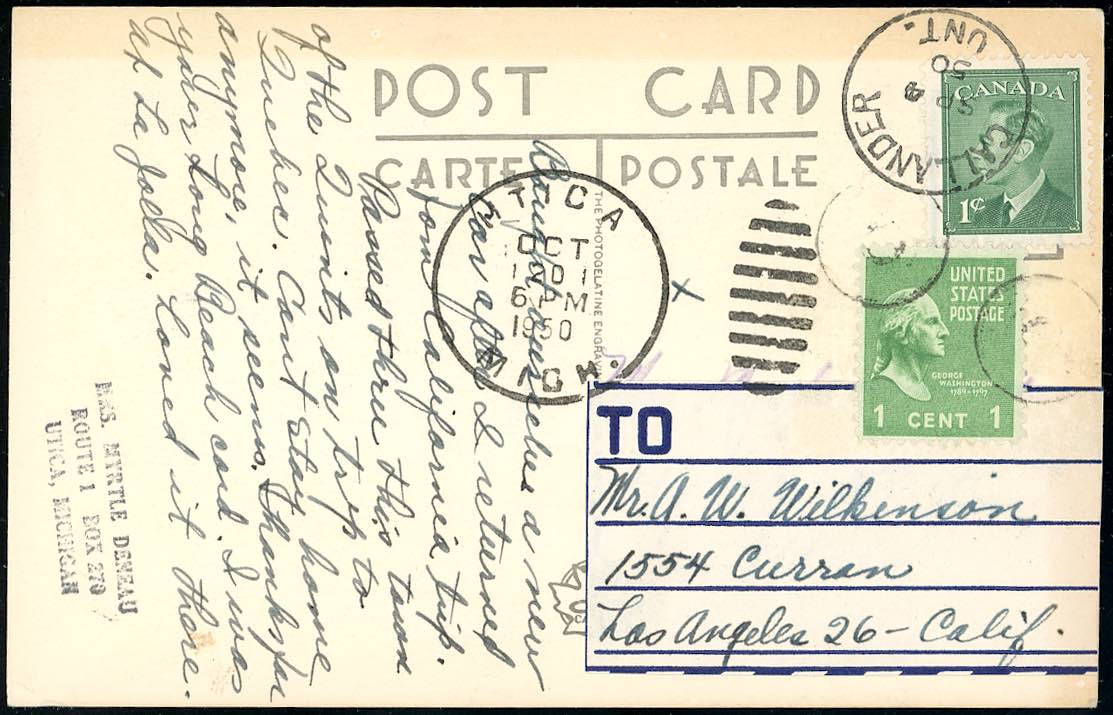 POST CARD
CARTE POSTALE
THE PHOTOGELATINE ENGRAV
CALLANDER
SP 4
50
ONT.
CANADA
1¢
UNITED
STATES
POSTAGE
GEORGE
WASHINGTON
1789-1797
1 CENT 1
UTICA
OCT
1950
MICH.
TO
Mr. A. W. Wilkenson
1554 Curran
Los Angeles 26 - Calif.
a new
car after I returned
from California trip.
Passed thru this town
of the Quints on trip to
Quebec. Cant stay home
anymore, it seems. Thanks for
your Long Beach card. I was
at La Jolla. Loved it there.
MRS. MYRTLE DENEAU
ROUTE 1 BOX 270
UTICA, MICHIGAN